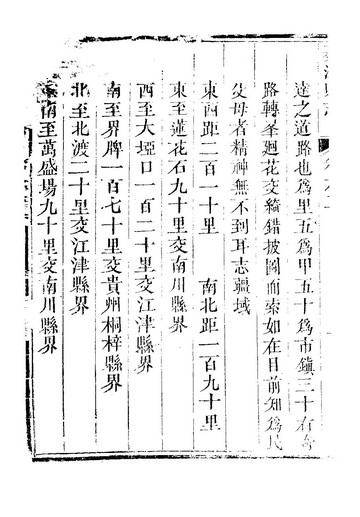 達之道路也爲里五爲甲五十爲市鎮三十有
路轉峯廻花交綺錯披圖而索如在目前知爲民
父母者精神無不到耳志疆域
東西距二百一十里　南北距一百九十里
東至蓮花石九十里交南川縣界
西至大埡口一百二十里交江津縣界
南至界牌一百七十里交貴州桐梓縣界
北至北渡二十里交江津縣界
東南至萬盛場九十里交南川縣界